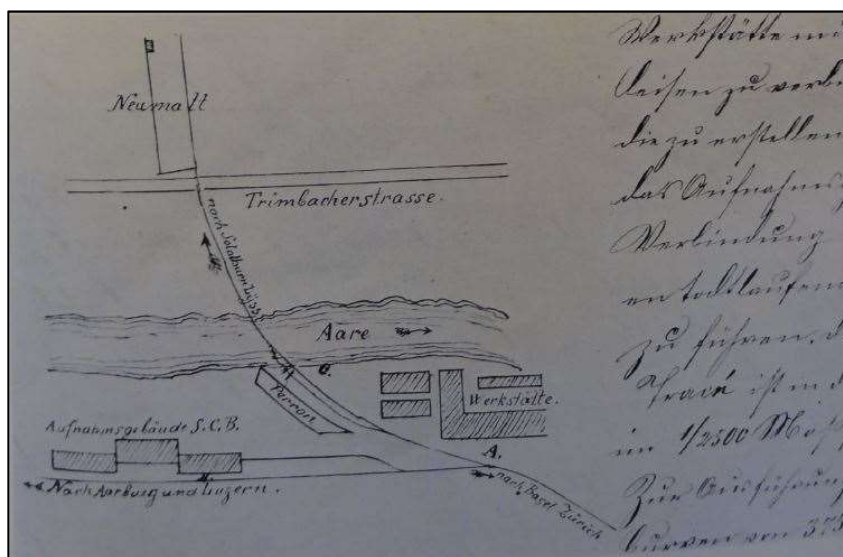 Neumatt
Trimbacherstrasse.
nach Solothurn Lyss
Aare
C.
Perron
Werkstätte.
Aufnahmsgebäude S.C.B.
A.
Nach Aarburg und Luzern.
nach Basel Zürich
Werkstätte mi
leisen zu verbi
die zu erstellen
das Aufnahmsg
Verbindung
en todtlaufend
zu führen. d
Tracé ist in d
im 1/2500 Maß
Zur Ausführung
kurven von 375